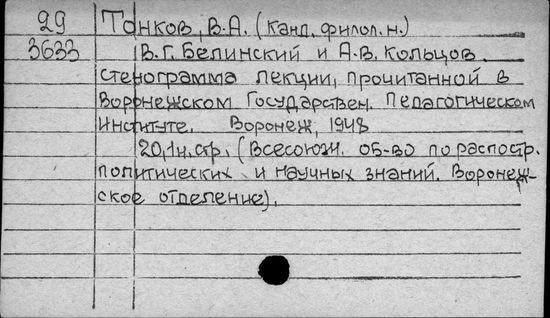 29 Тонков, В.А. (канд. филол. н.)
3633 В.Г. Белинский и А.В. Кольцов.
стенограмма лекции, прочитанной в
Воронежском Государствен. Педагогическом
институте. Воронеж, 1948
20, 1 н. стр. (Всесоюзн. об-во по распостр.
политических и научных знаний. Воронеж-
ское отделение).